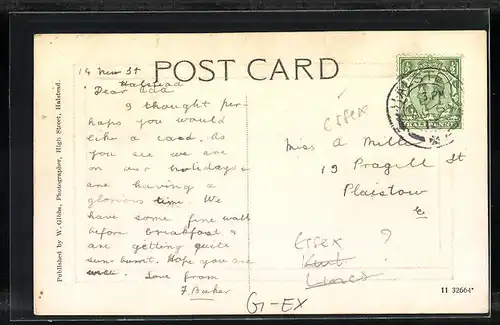 POST CARD
14 New St
Halstead
Dear Ada
I thought per-
haps you would
like a card. As
you see we are
on our holidays &
are having a
glorious time. We
have some fine walks
before breakfast &
are getting quite
sun-burnt. Hope you are
well. Love from
F. Baker
Essex
Miss A Mills
19 Pragill St
Plaistow
E
Essex ?
Kent
Lincs
G-EX
Published by W. Gibbs, Photographer, High Street, Halstead.
11 32664*